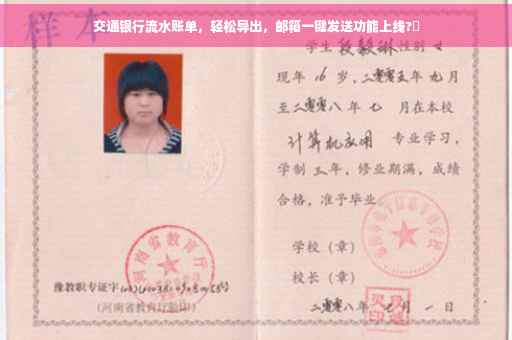 交通银行流水账单，轻松导出，邮箱一键发送功能上线?
样本
学生段毅琳性别女
现年16岁，二零零五年九月
至二零零八年七月在本校
计算机应用 专业学习，
学制三年，修业期满，成绩
合格，准予毕业。
学校（章）
校长（章）
二零零八年七月一日
河南省教育厅
豫教职专证字
(河南省教育厅验印)